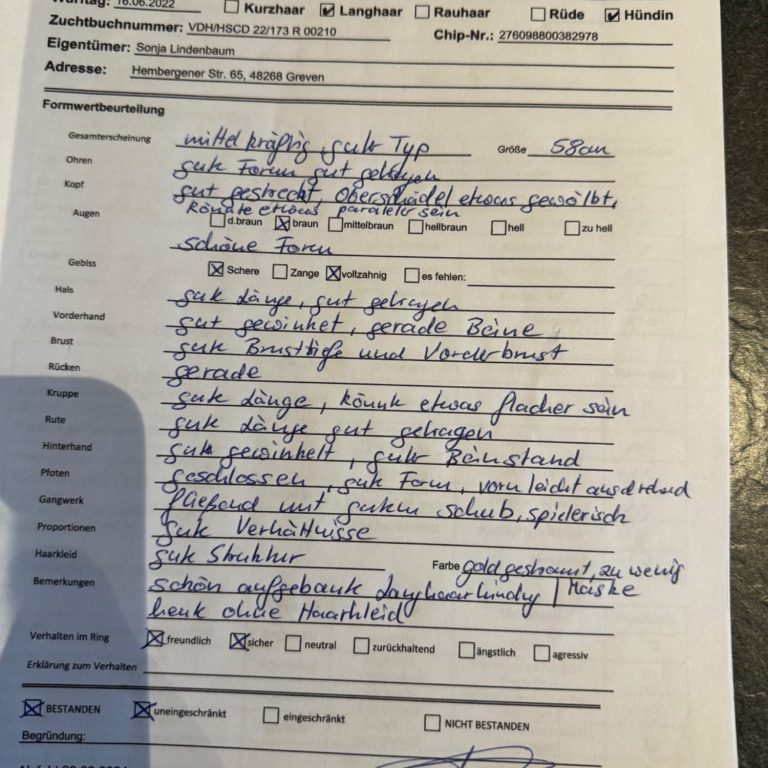 Wurftag: 16.06.2022 ☐ Kurzhaar ☑ Langhaar ☐ Rauhaar ☐ Rüde ☑ Hündin
Zuchtbuchnummer: VDH/HSCD 22/173 R 00210 Chip-Nr.: 276098800382978
Eigentümer: Sonja Lindenbaum
Adresse: Hembergener Str. 65, 48268 Greven
Formwertbeurteilung
Gesamterscheinung mittelkräftig, guter Typ Größe 58cm
Ohren gute Form gut getragen
Kopf gut gestreckt, Oberschädel etwas gewölbt,
könnte etwas paraleler sein
Augen ☐ d.braun ☒ braun ☐ mittelbraun ☐ hellbraun ☐ hell ☐ zu hell
schöne Form
Gebiss ☒ Schere ☐ Zange ☒ vollzahnig ☐ es fehlen:
Hals gute Länge, gut getragen
Vorderhand gut gewinkelt, gerade Beine
Brust gute Brusttiefe und Vorderbrust
Rücken gerade
Kruppe gute Länge, könnte etwas flacher sein
Rute gute Länge gut getragen
Hinterhand gut gewinkelt, guter Beinstand
Pfoten geschlossen, gute Form, vorn leicht ausdrehend
Gangwerk fließend mit gutem Schub, spielerisch
Proportionen gute Verhältnisse
Haarkleid gute Struktur Farbe goldgestromt, zu wenig
Maske
Bemerkungen schön aufgebaute Langhaarhündin
heute ohne Haarkleid
Verhalten im Ring ☒ freundlich ☒ sicher ☐ neutral ☐ zurückhaltend ☐ ängstlich ☐ agressiv
Erklärung zum Verhalten
☒ BESTANDEN ☒ uneingeschränkt ☐ eingeschränkt ☐ NICHT BESTANDEN
Begründung: